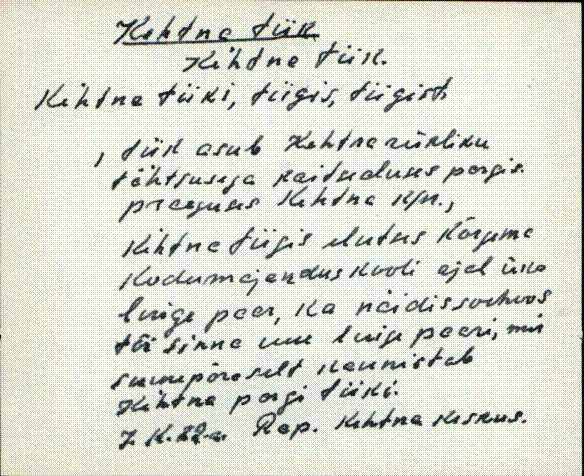 Kehtna tiik
Kehtna tiik.
Kehtna tiiki, tiigis, tiigist.
, tiik asub Kehtna riikliku
tähtsusega kaitsealuses pargis.
praeguses Kehtna k/n.,
Kehtna tiigis elutses Kõrgema
Kodumajanduskooli ajal üks
luige paar, ka näidissovhoos
tõi sinna uue luige paari, mis
suurepäraselt kaunistab
Kehtna pargi tiiki.
J. K. 22-a. Rap. Kehtna keskus.